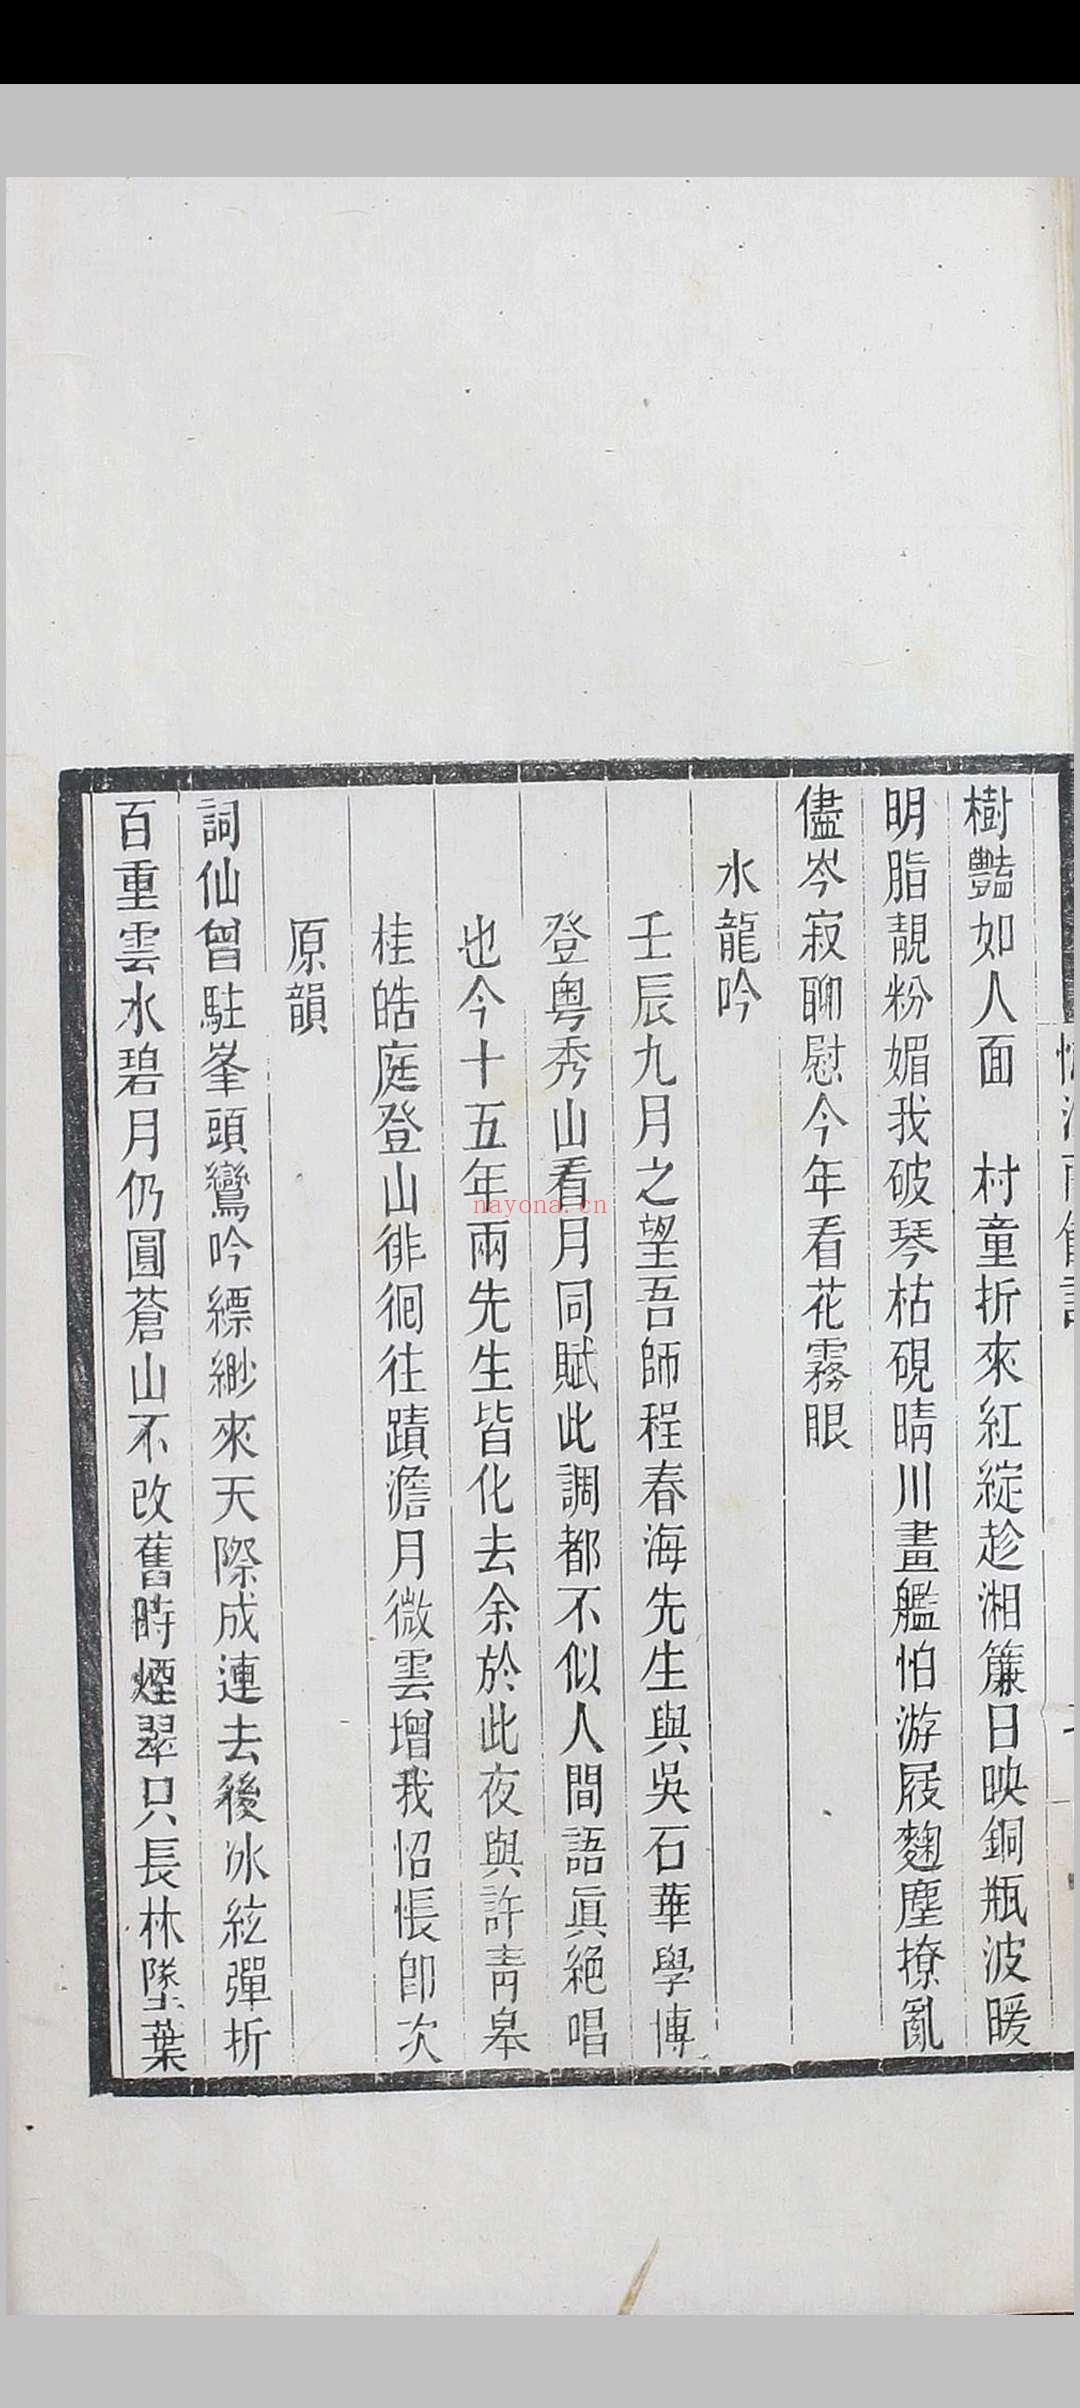 樹豔如人面　村童折來紅綻趁湘簾日映銅瓶波暖
明脂靚粉媚我破琴枯硯晴川畫艦怕游屐麴塵撩亂
儘岑寂聊慰今年看花霧眼
水龍吟
壬辰九月之望吾師程春海先生與吳石華學博
登粵秀山看月同賦此調都不似人間語眞絕唱
也今十五年兩先生皆化去余於此夜與許青皋
桂皓庭登山徘徊往蹟澹月微雲增我怊悵卽次
原韻
詞仙曾駐峯頭鸞吟縹緲來天際成連去後冰絃彈折
百重雲水碧月仍圓蒼山不改舊時煙翠只長林墜葉
nayona.cn